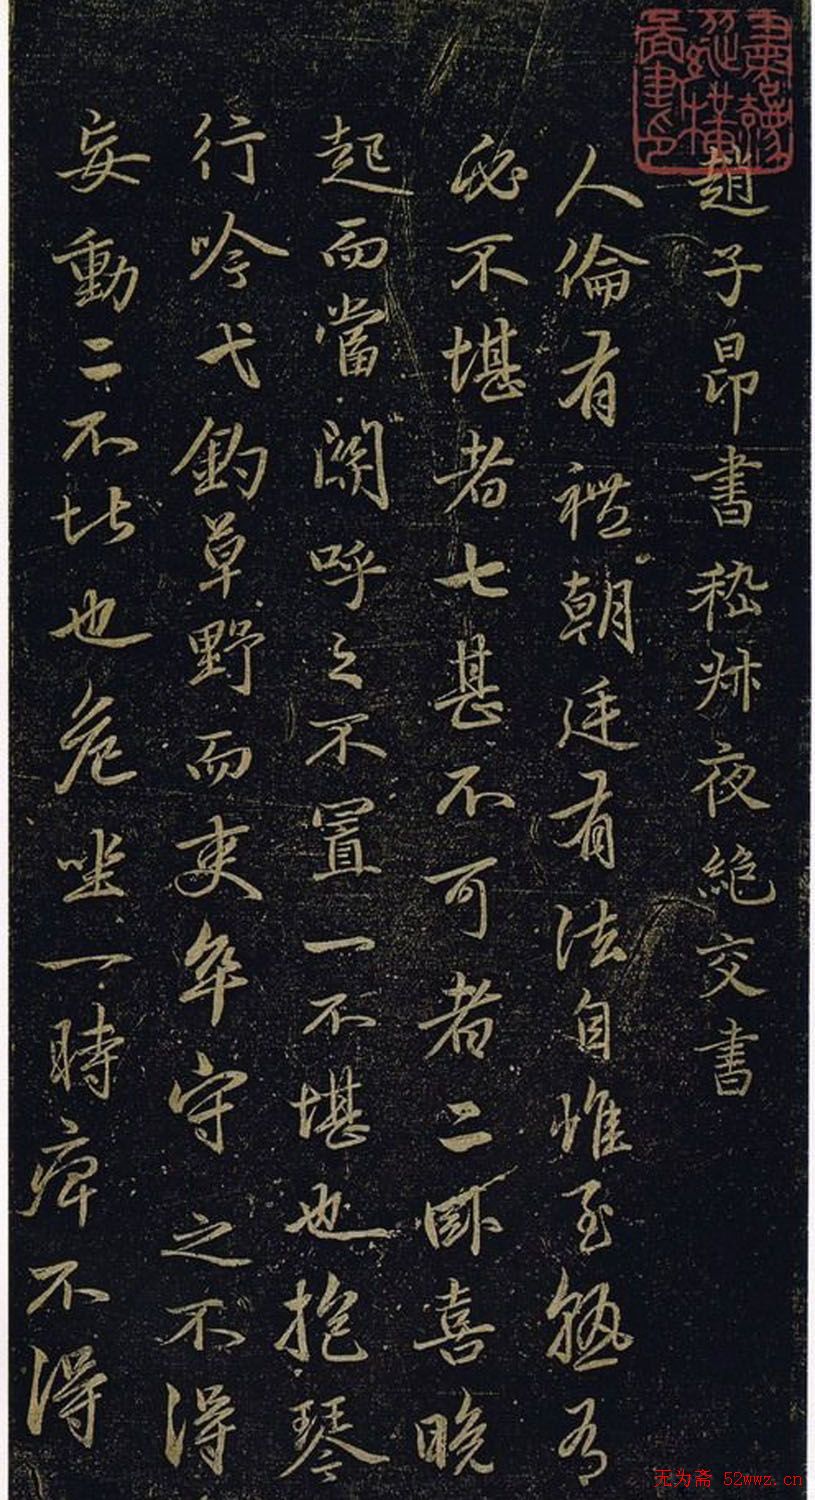 趙子昂書嵇叔夜絕交書
人倫有禮朝廷有法自惟至熟有
必不堪者七甚不可者二卧喜晚
起而當關呼之不置一不堪也抱琴
行吟弋釣草野而吏卒守之不得
妄動二不堪也危坐一時痹不得
无为斋 52wwz.cn